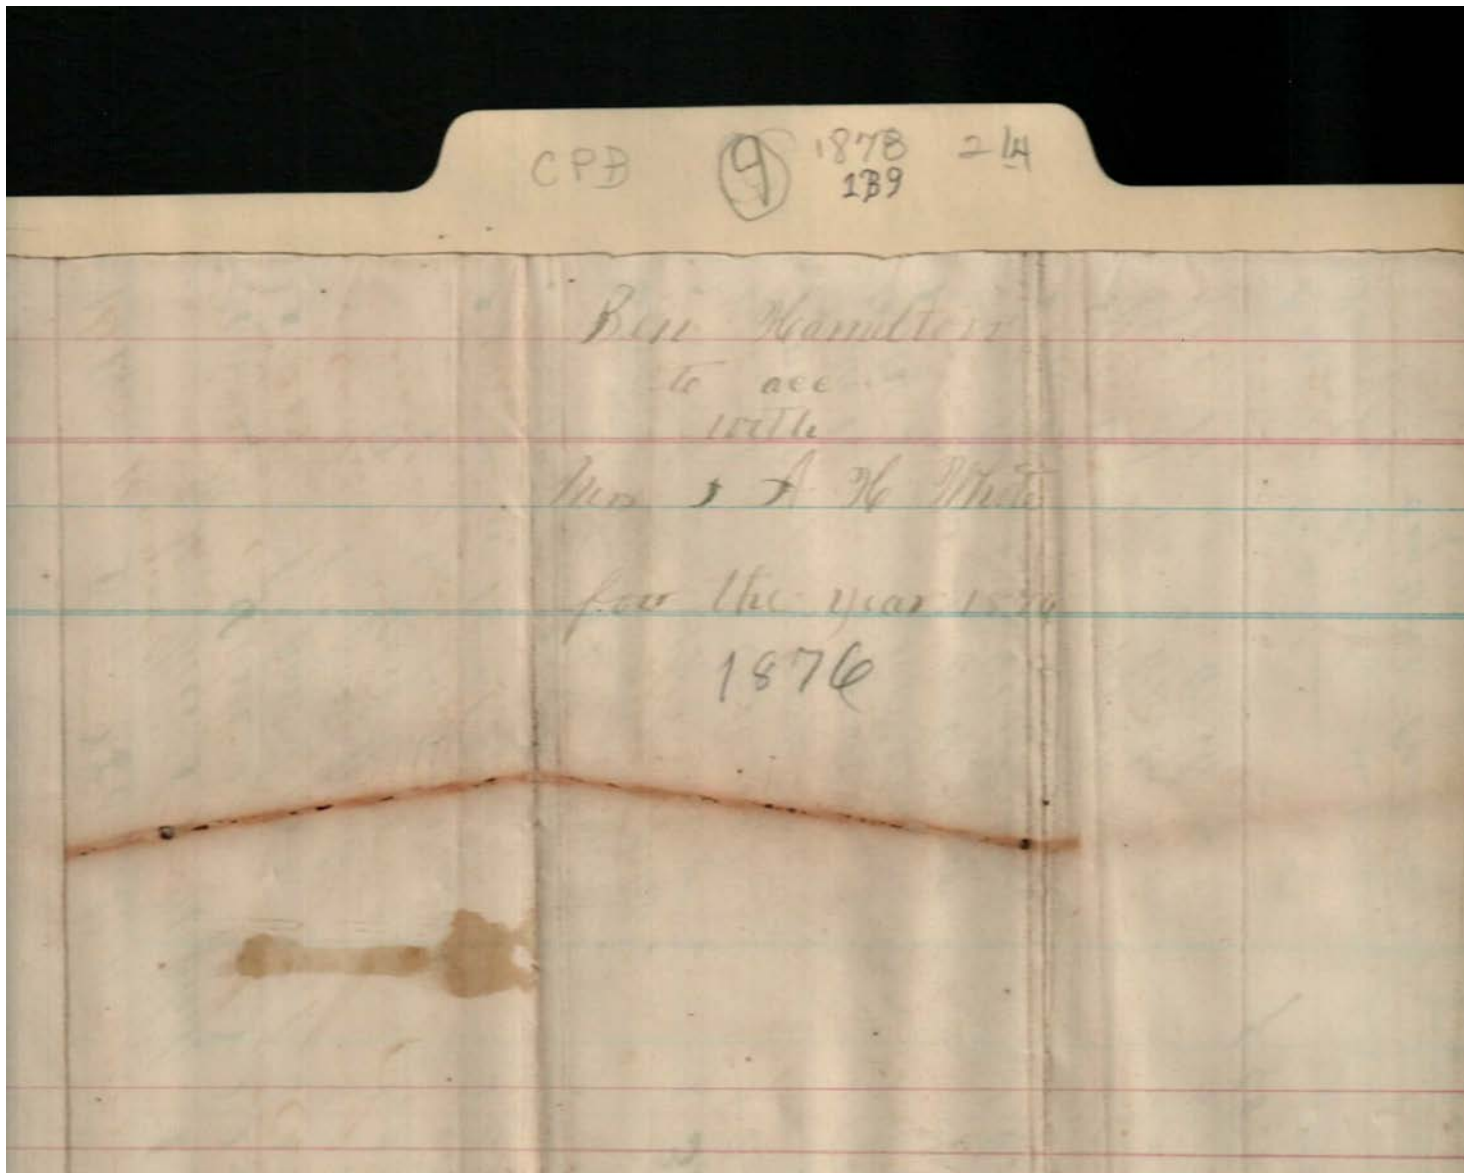 CPB 9 1878 2/4
1B9
Ben Hamilton
to acc
with
Mrs A H White
for the year 1876
1876